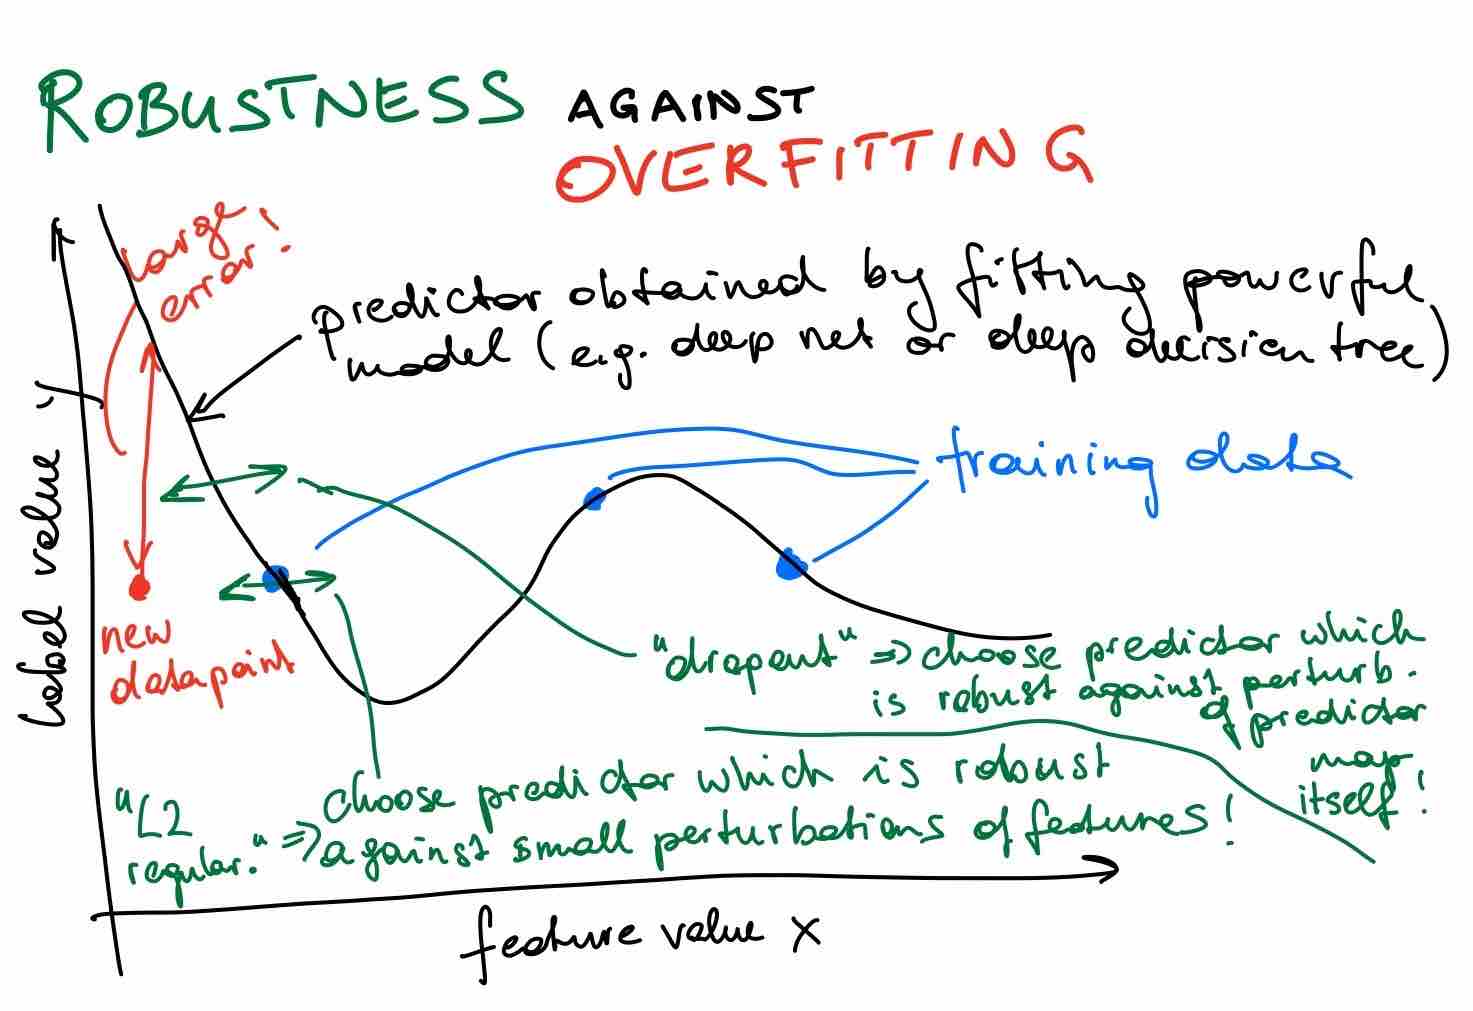 ROBUSTNESS AGAINST
OVERFITTING
large
error!
predictor obtained by fitting powerful
model (e.g. deep net or deep decision tree)
label value y
training data
new
datapoint
"dropout" => choose predictor which
is robust against perturb.
of predictor
map
itself!
"L2
regular." =>
choose predictor which is robust
against small perturbations of features!
feature value x